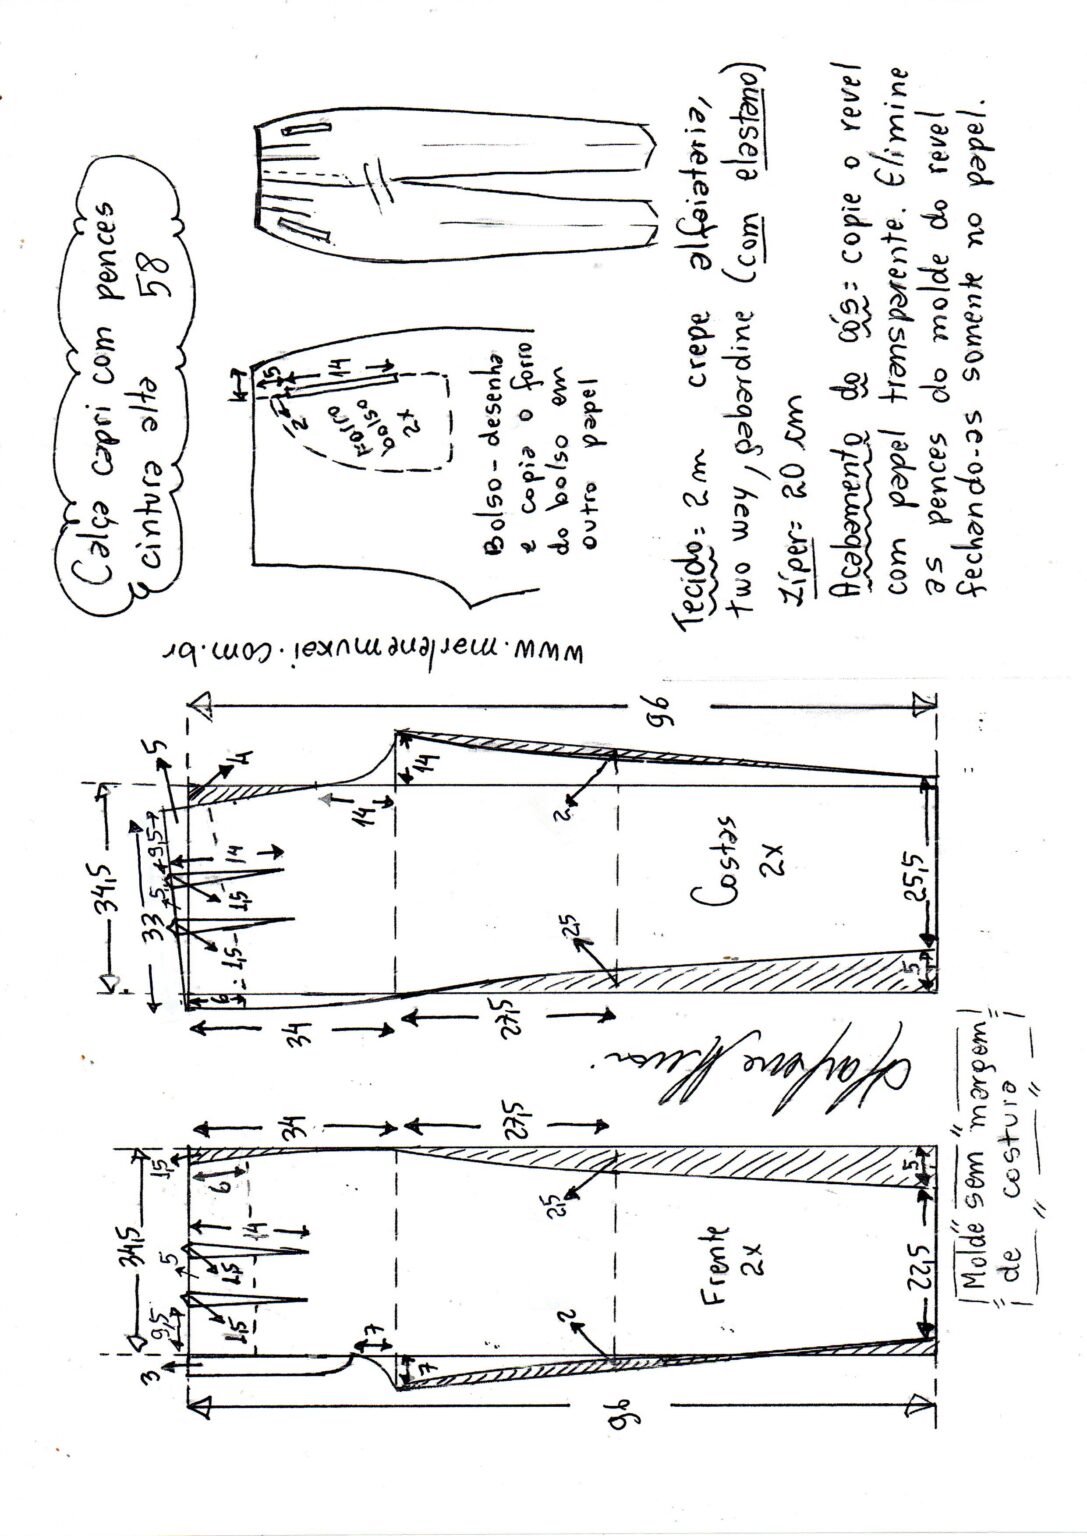 Calça capri com pences
e cintura alta 58
4
5
14
2
Forro
bolso
2x
Bolso - desenha
e copia o forro
do bolso em
outro papel
Tecido = 2 m crepe alfaiataria,
two way, gabardine (com elastano)
Zíper = 20 cm
Acabamento do cós = copie o revel
com papel transparente. Elimine
as pences do molde do revel
fechando-as somente no papel.
www.marlenemukai.com.br
34,5
33
5
4
9,5
5
14
1,5
1,5
6
14
14
34
27,5
2
2,5
Costas
2x
25,5
5
96
34,5
3
9,5
5
1,5
1,5
1,5
14
6
7
7
34
27,5
2
2,5
Frente
2x
22,5
5
96
Molde sem margem
de costura